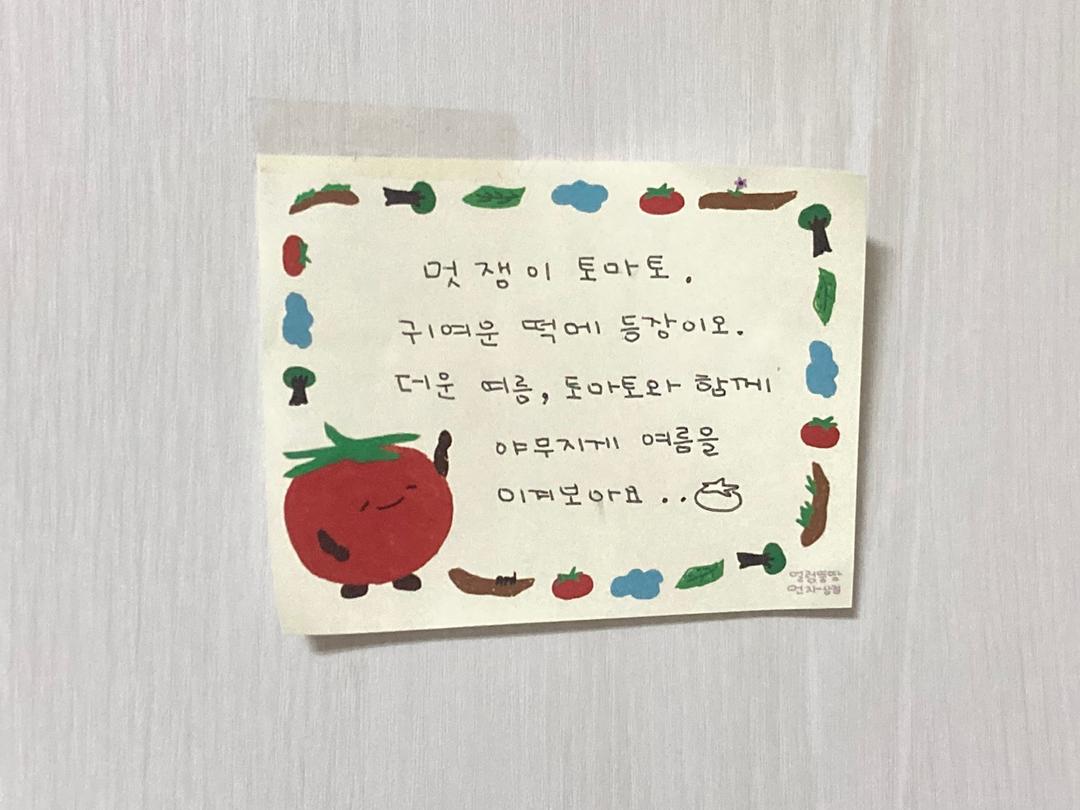 멋쟁이 토마토.
귀여운 떡에 등장이오.
더운 여름, 토마토와 함께
야무지게 여름을
이겨보아요..